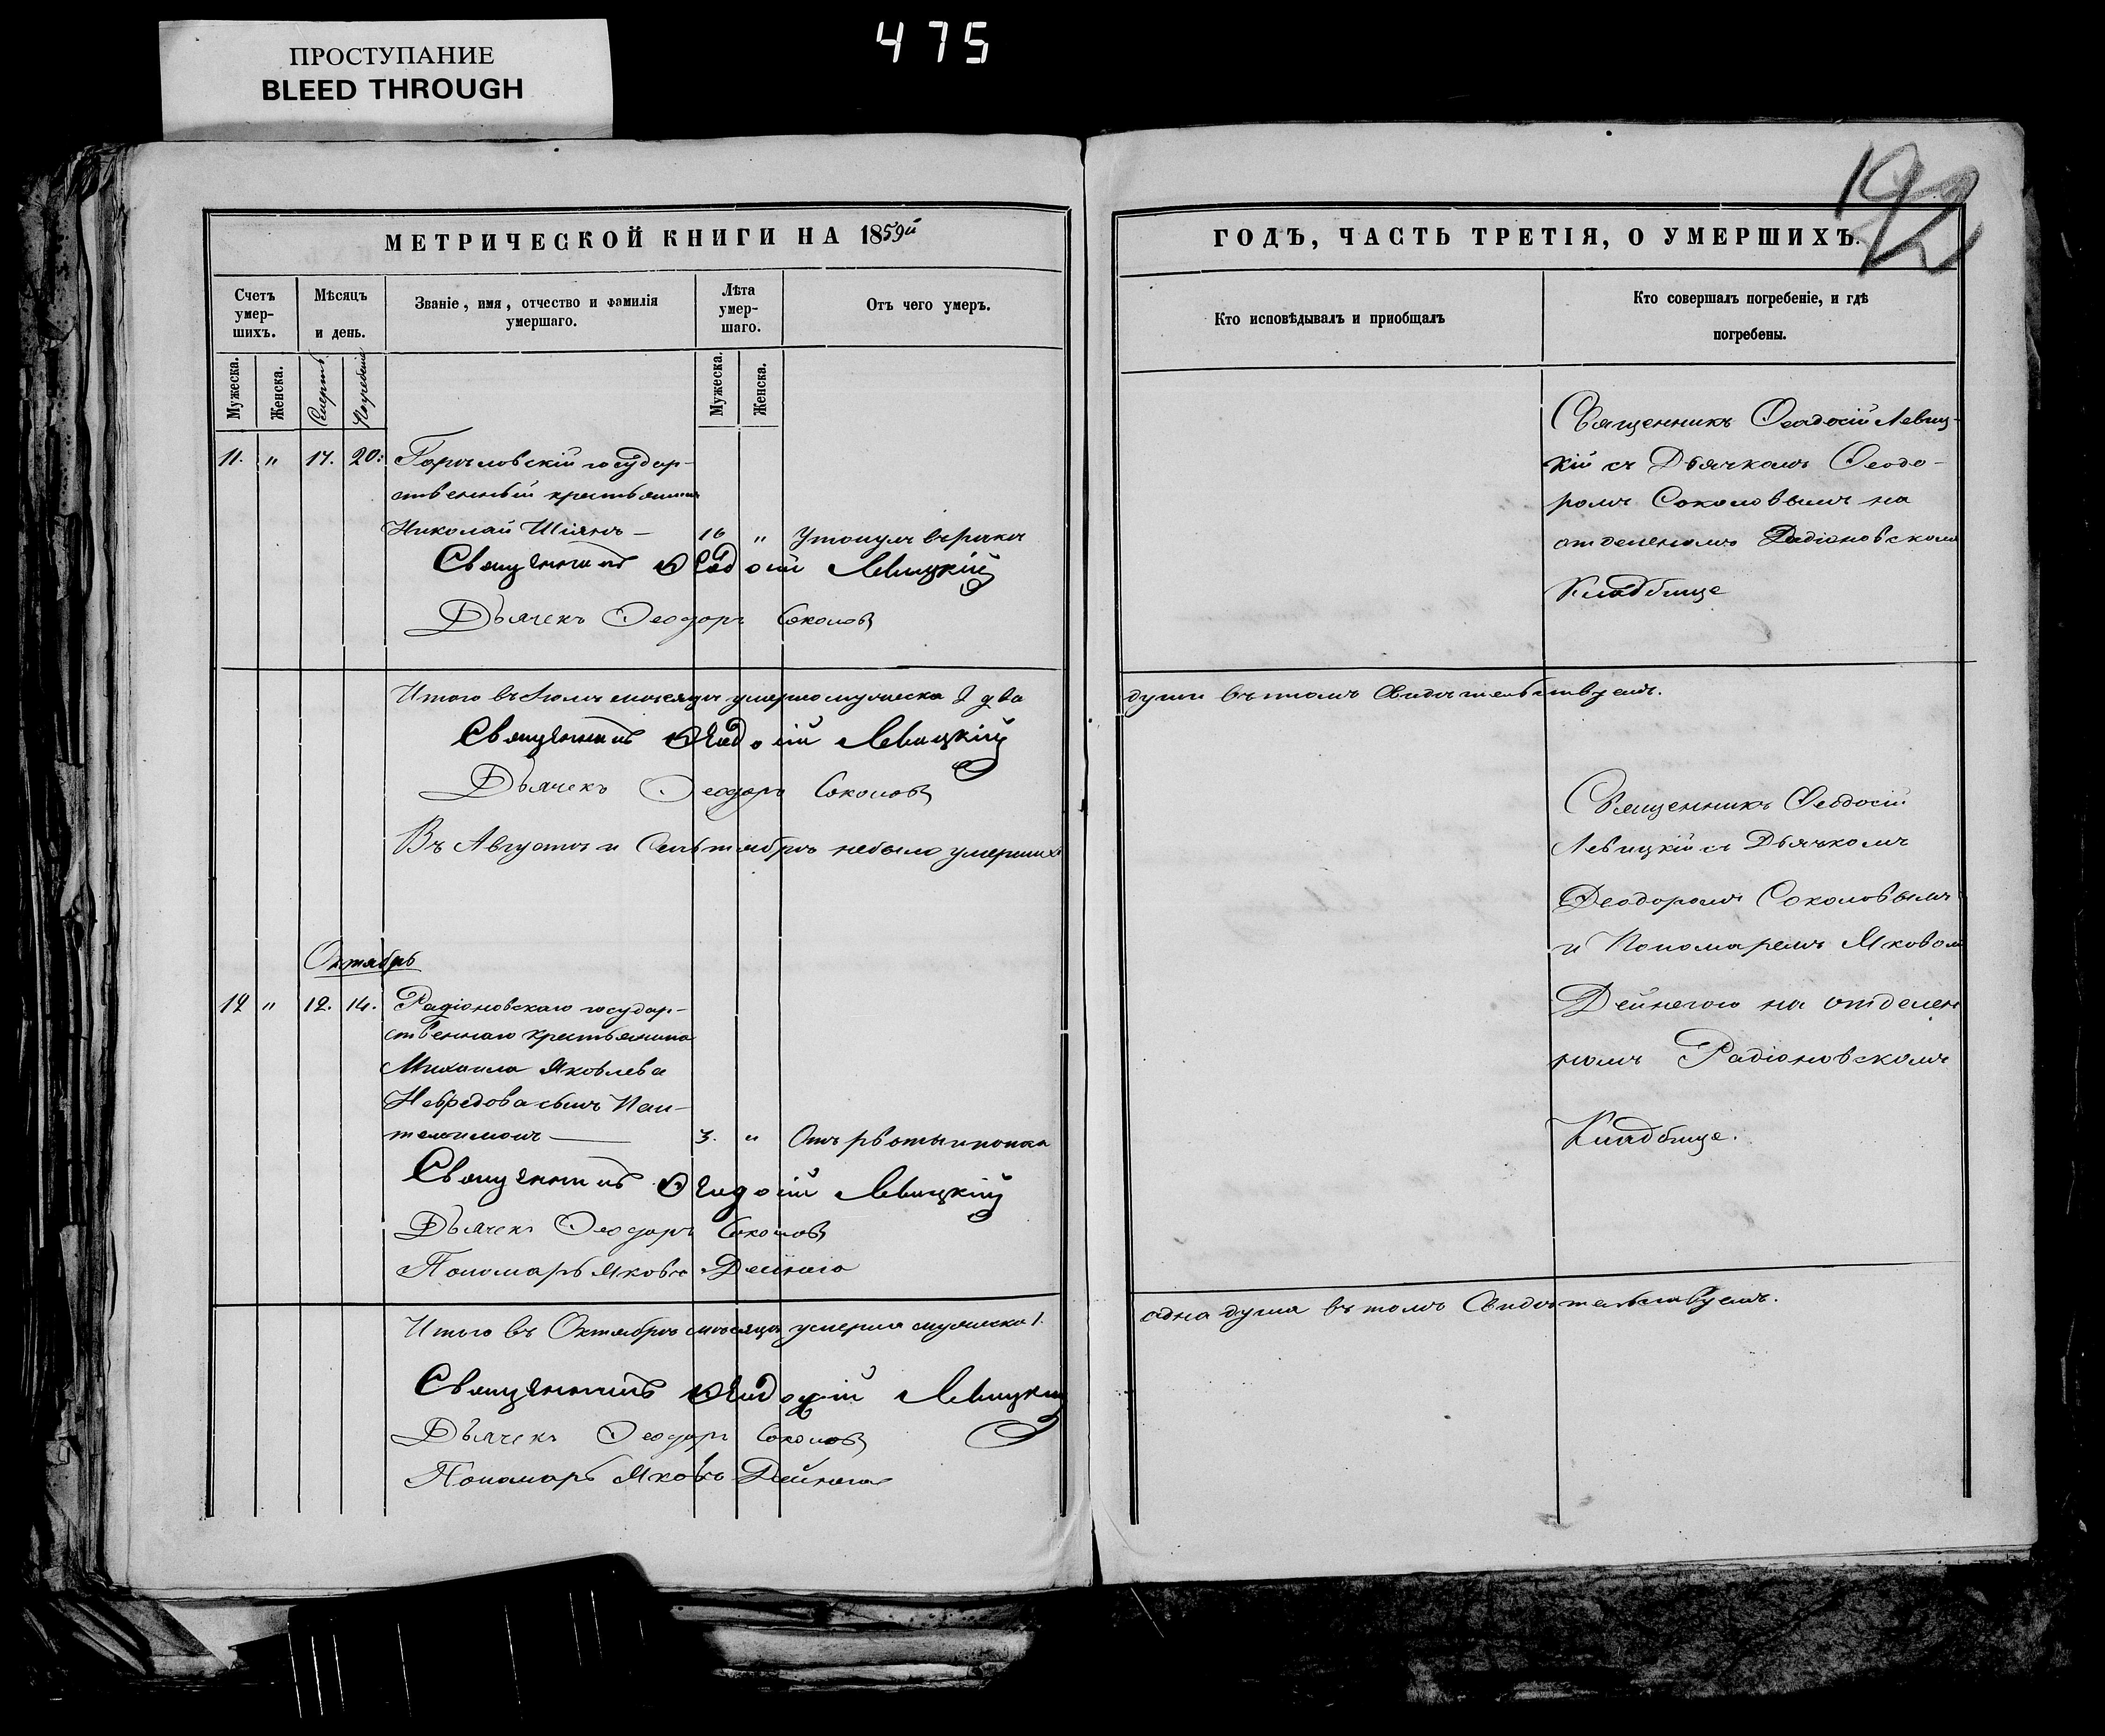 ПРОСТУПАНИЕ
BLEED THROUGH
475
192
МЕТРИЧЕСКОЙ КНИГИ НА 1859й
Счетъ умер-шихъ.
Мѣсяцъ и день.
Званіе, имя, отчество и фамилія умершаго.
Лѣта умер-шаго.
Отъ чего умеръ.
Мужеска.
Женска.
Смерть
Погребенія
Мужеска.
Женска.
11. " 17. 20. государ-
ственный крестьянинъ
Николай Шіянъ — 16 " Утонулъ въ рѣкѣ
Священникъ Ѳеодосій Левицкій
Дьячекъ Ѳеодоръ Соколовъ
Итого въ Іюлѣ мѣсяцѣ умерло мужеска 2 два
Священникъ Ѳеодосій Левицкій
Дьячекъ Ѳеодоръ Соколовъ
Въ Августѣ и Сентябрѣ небыло умершихъ
Октябрь
12 " 12. 14. Радіоновскаго государ-
ственнаго крестьянина
Михаила Яковлева
сынъ Пан-
телимонъ — 3. " Отъ рвоты и поноса
Священникъ Ѳеодосій Левицкій
Дьячекъ Ѳеодоръ Соколовъ
Пономарь Яковъ Дейнега
Итого въ Октябрѣ мѣсяцѣ умерла мужеска 1.
Священникъ Ѳеодосій Левицкій
Дьячекъ Ѳеодоръ Соколовъ
Пономарь Яковъ Дейнега
ГОДЪ, ЧАСТЬ ТРЕТІЯ, О УМЕРШИХЪ.
Кто исповѣдывалъ и приобщалъ
Кто совершалъ погребеніе, и гдѣ
погребены.
Священникъ Ѳеодосій Левиц-
кій съ Дьячкомъ Ѳеодо-
ромъ Соколовымъ на
отделеномъ Радіоновскомъ
Кладбище
души въ томъ Свидѣтельствуемъ.
Священникъ Ѳеодосій
Левицкій съ Дьячкомъ
Ѳеодоромъ Соколовымъ
и Пономаремъ Яковомъ
Дейнегою на отделен
номъ Радіоновскомъ
Кладбище.
одна душа въ томъ Свидѣтельствуемъ.